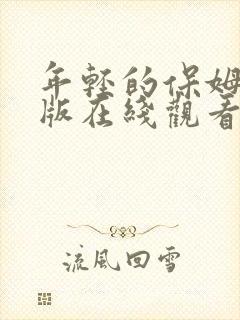 年轻的保姆
版在线觀看
流風回雪